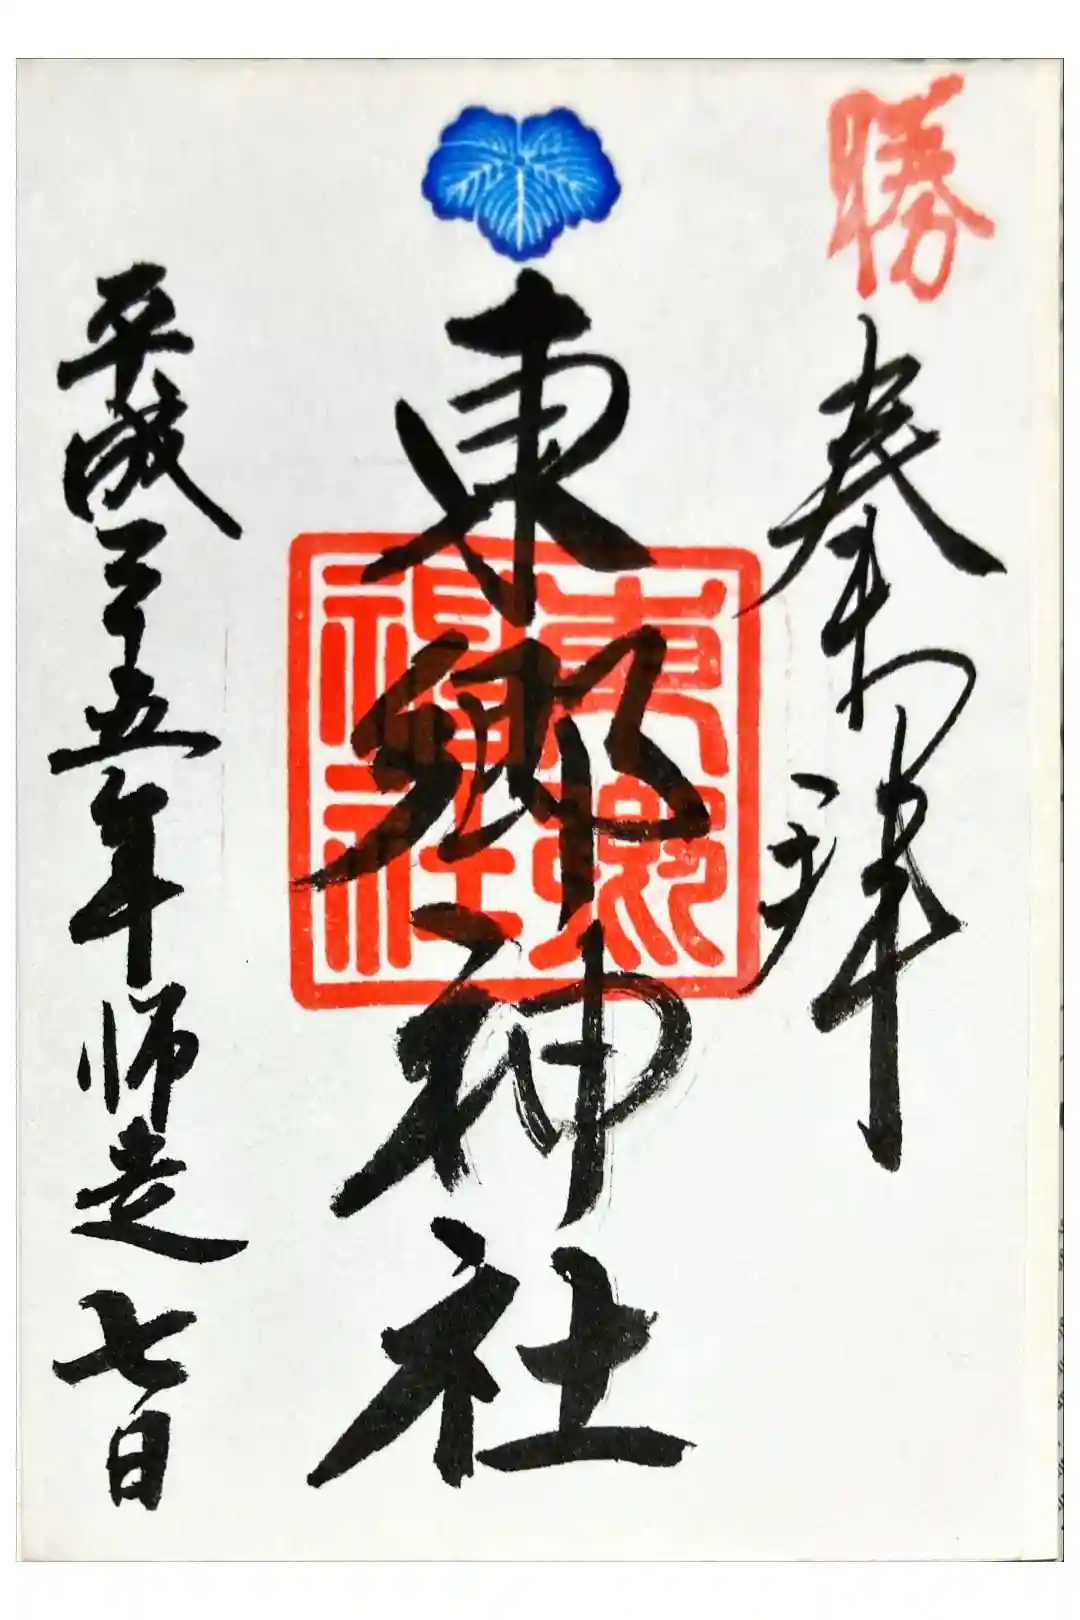 勝
奉拝
東郷神社
東郷
神社
平成二十五年師走七日